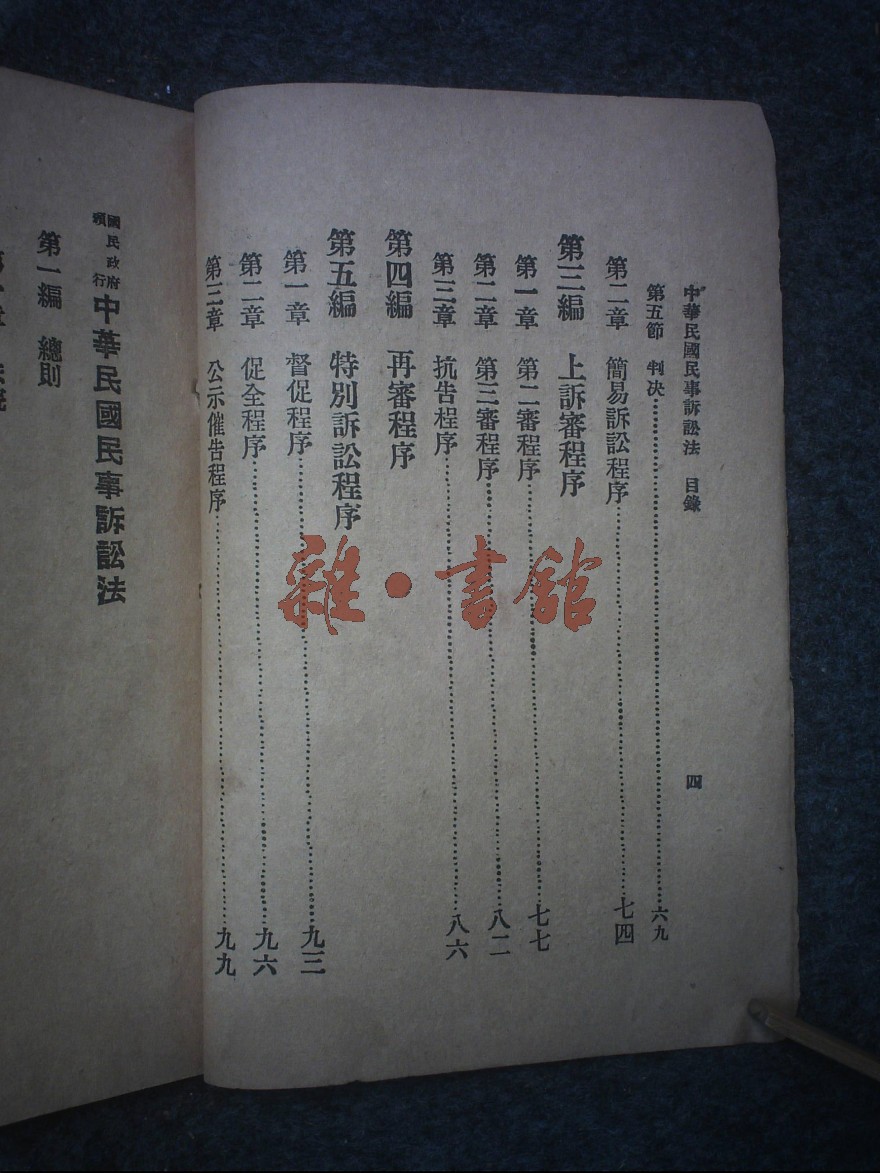 中華民國民事訴訟法 目錄 四
第五節 判决……六九
第二章 簡易訴訟程序……七四
第三編 上訴審程序
第一章 第二審程序……七七
第二章 第三審程序……八二
第三章 抗告程序……八六
第四編 再審程序
第五編 特別訴訟程序
第一章 督促程序……九三
第二章 促全程序……九六
第三章 公示催告程序……九九
國民政府頒行 中華民國民事訴訟法
第一編 總則
雜·書館